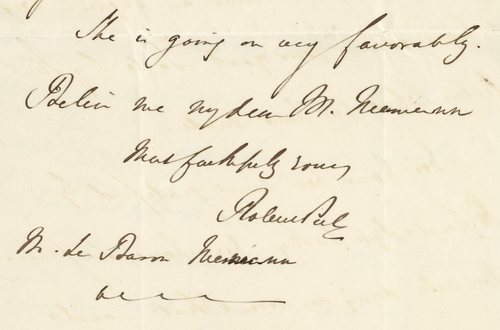 She is going on very favorably.
Believe me my dear M. Neumann
Most faithfully yours
Robert Peel
M. le Baron Neumann